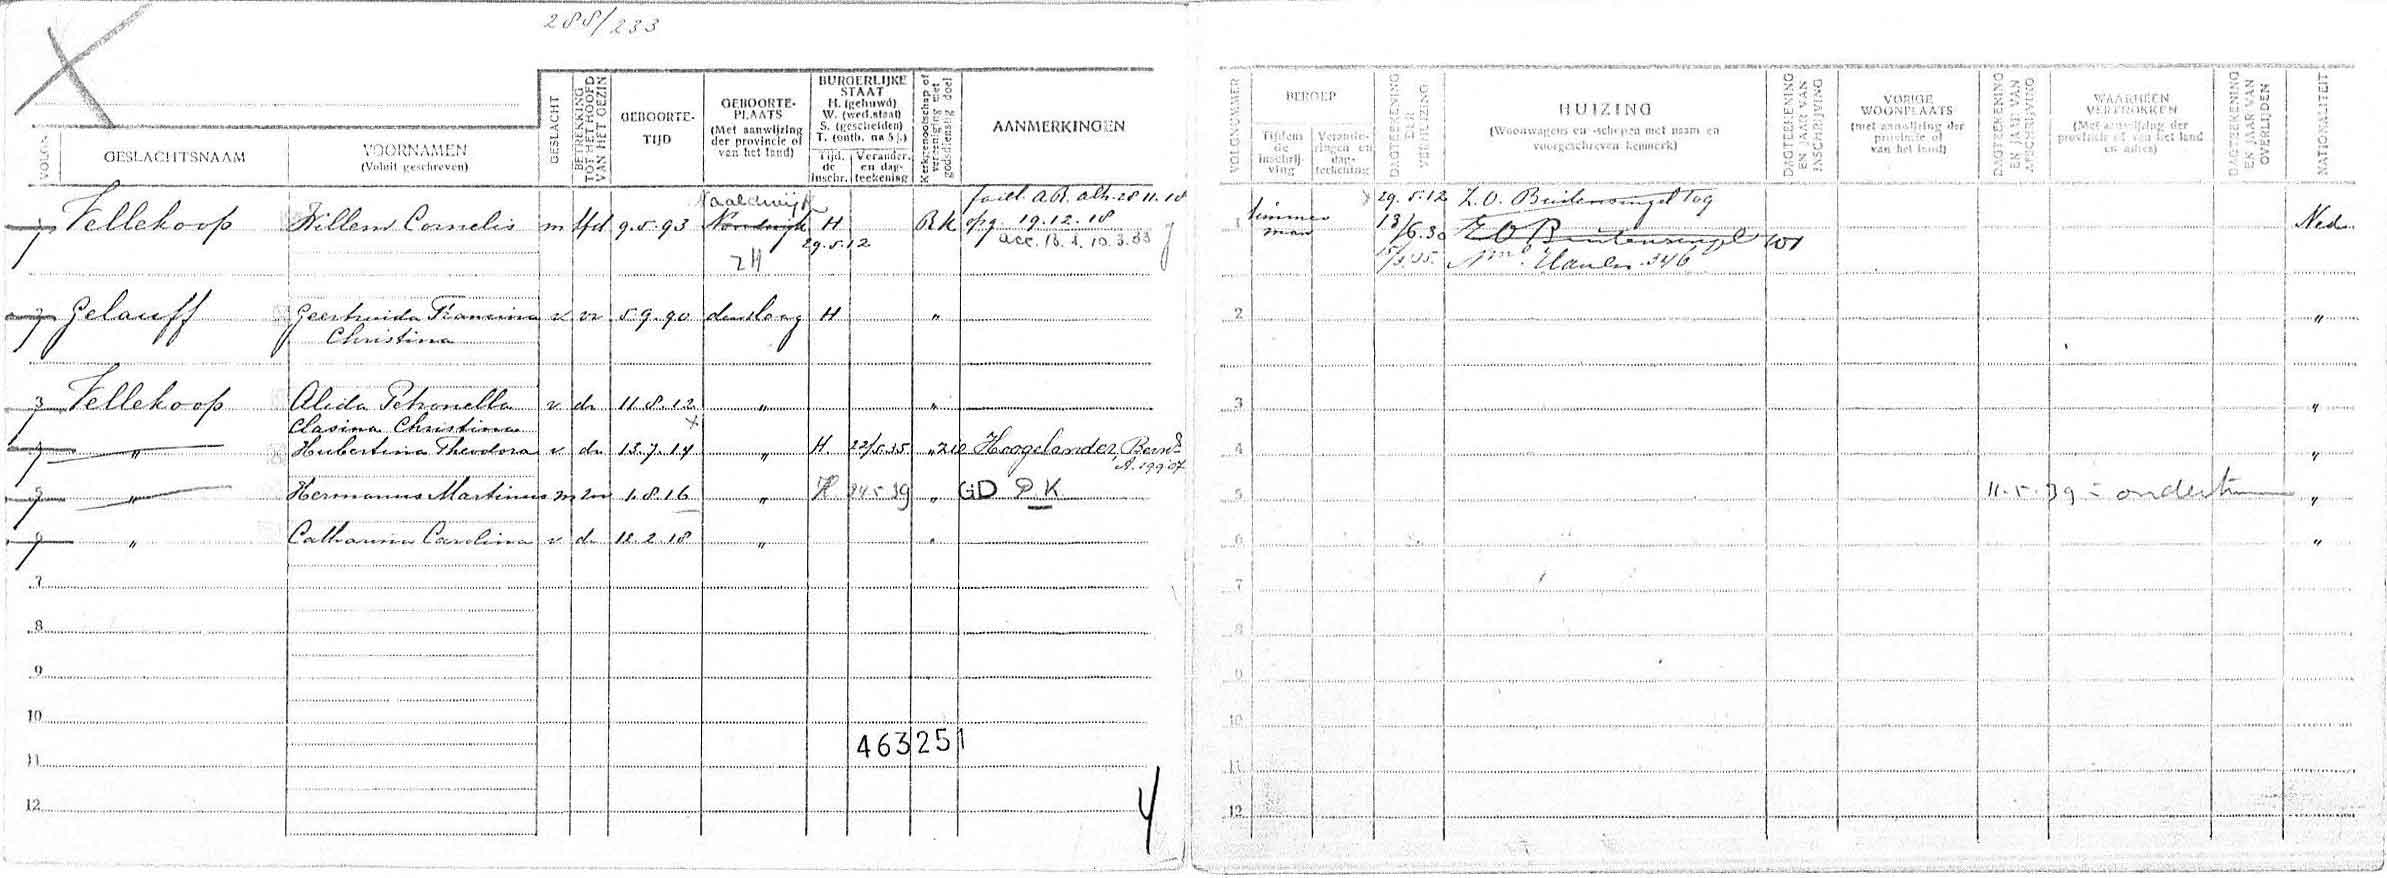 288/233
VOLGN.
GESLACHTSNAAM
VOORNAMEN
(Voluit geschreven)
GESLACHT
BETREKKING
TOT HET HOOFD
VAN HET GEZIN
GEBOORTE-
TIJD
GEBOORTE-
PLAATS
(Met aanwijzing
der provincie of
van het land)
BURGERLIJKE
STAAT
H. (gehuwd)
W. (wed.staat)
S. (gescheiden)
T. (ontb. na 5 j.)
Tijd.
de
inschr.
Verander.
en dag-
teekening
Kerkgenootschap of
vereeniging met
godsdienstig doel
AANMERKINGEN
VOLGNUMMER
BEROEP
Tijdens
de
inschrij-
ving
Verande-
ringen en
dag-
teekening
DAGTEEKENING
DER
VERHUIZING
HUIZING
(Woonwagens en -schepen met naam en
voorgeschreven kenmerk)
DAGTEEKENING
EN JAAR VAN
INSCHRIJVING
VORIGE
WOONPLAATS
(met aanwijzing der
provincie of
van het land)
DAGTEEKENING
EN JAAR VAN
AFSCHRIJVING
WAARHEEN
VERTROKKEN
(Met aanwijzing der
provincie of van het land
en adres)
DAGTEEKENING
EN JAAR VAN
OVERLIJDEN
NATIONALITEIT
Naaldwijk
1 Vellekoop Willem Cornelis m hfd 9.5.93 Noordwijk H R k
29.5.12
ZH
failt. a.R. 28.11.18
opg. 19.12.18
acc. 10.3.33
1 timmer
man
29.5.12 Z.O. Buitensingel 709
13/6.30 Z O Buitensingel 101
15/5.35. 346
Ned.
2 Gelauff Geertruida Francina v vr 5.9.90 den Haag H "
Christina
2 "
3 Vellekoop Alida Petronella v dr 11.8.12 " "
3 "
Clasina Christina
4 " Hubertina Theodora v dr 13.7.14 " H. 22/5.35 " zie Hoogelander, Bernd
A. 19907
4 "
5 " Hermanus Martinus m zn 1.8.16 " H 24.5.39 " GD P.K
5 11.5.39 = ondertr "
6 " Catharina Carolina v dr 12.2.18 " "
6 "
7
7
8
8
9
9
10
10
463251
11
11
12
12